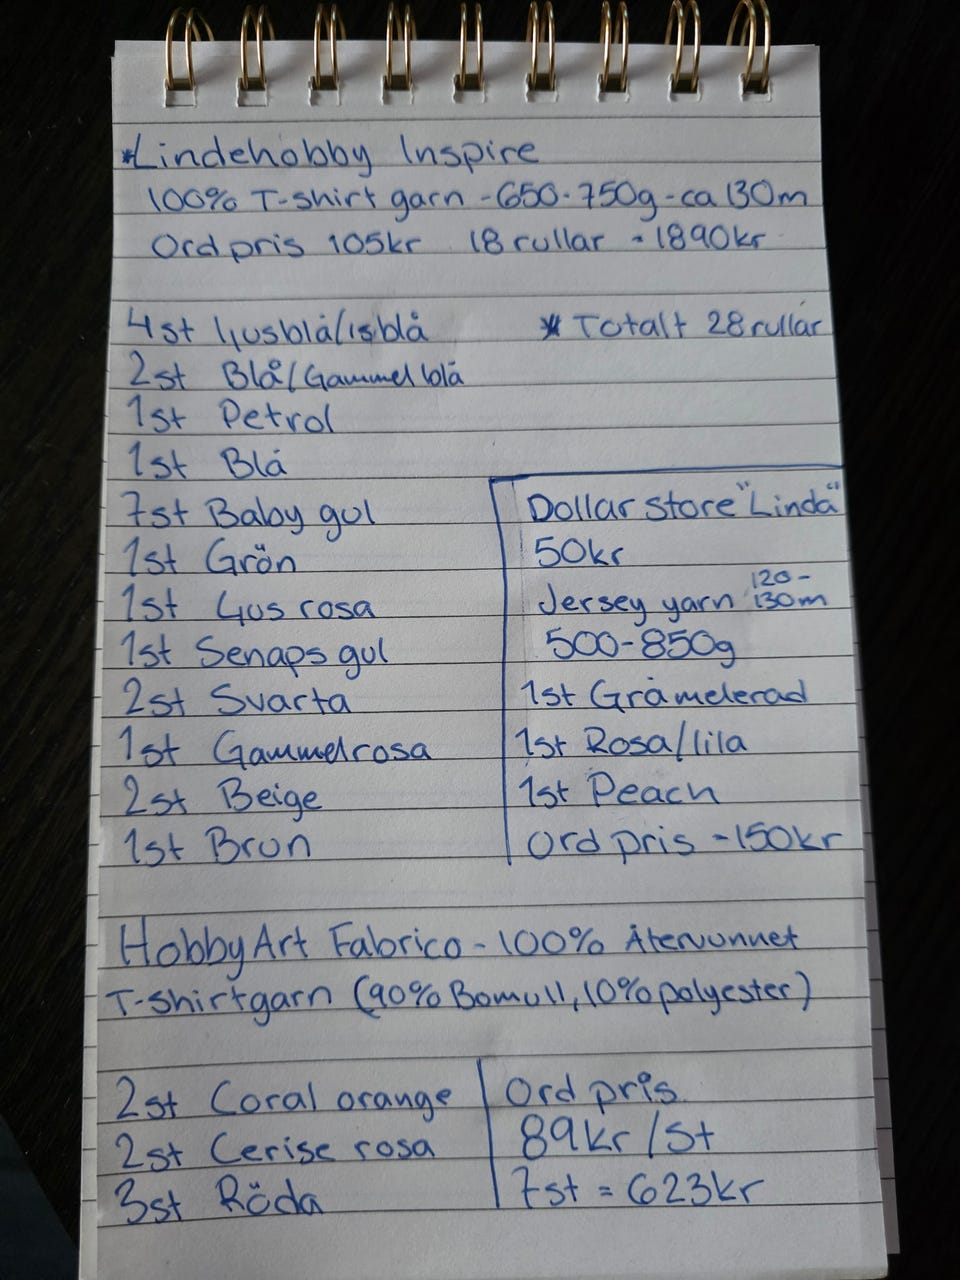 *Lindehobby Inspire
100% T-shirt garn - 650-750g - ca 130m
Ord pris 105kr 18 rullar = 1890kr
4st ljusblå/isblå
* Totalt 28 rullar
2st Blå/Gammel blå
1st Petrol
1st Blå
7st Baby gul
1st Grön
1st Ljus rosa
1st Senaps gul
2st Svarta
1st Gammelrosa
2st Beige
1st Brun
Dollar store "Linda"
50kr
Jersey yarn 120-130m
500-850g
1st Gråmelerad
1st Rosa/lila
1st Peach
Ord pris = 150kr
HobbyArt Fabrico - 100% Återvunnet
T-shirtgarn (90% Bomull, 10% polyester)
2st Coral orange
2st Cerise rosa
3st Röda
Ord pris
89kr/st
7st = 623kr